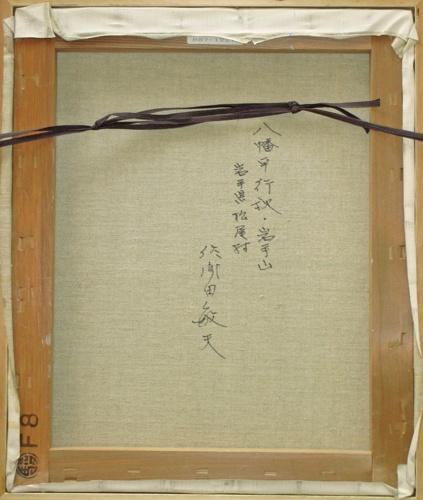 八幡平行秋・岩手山
岩手県松尾村
佐間田敏夫
F8